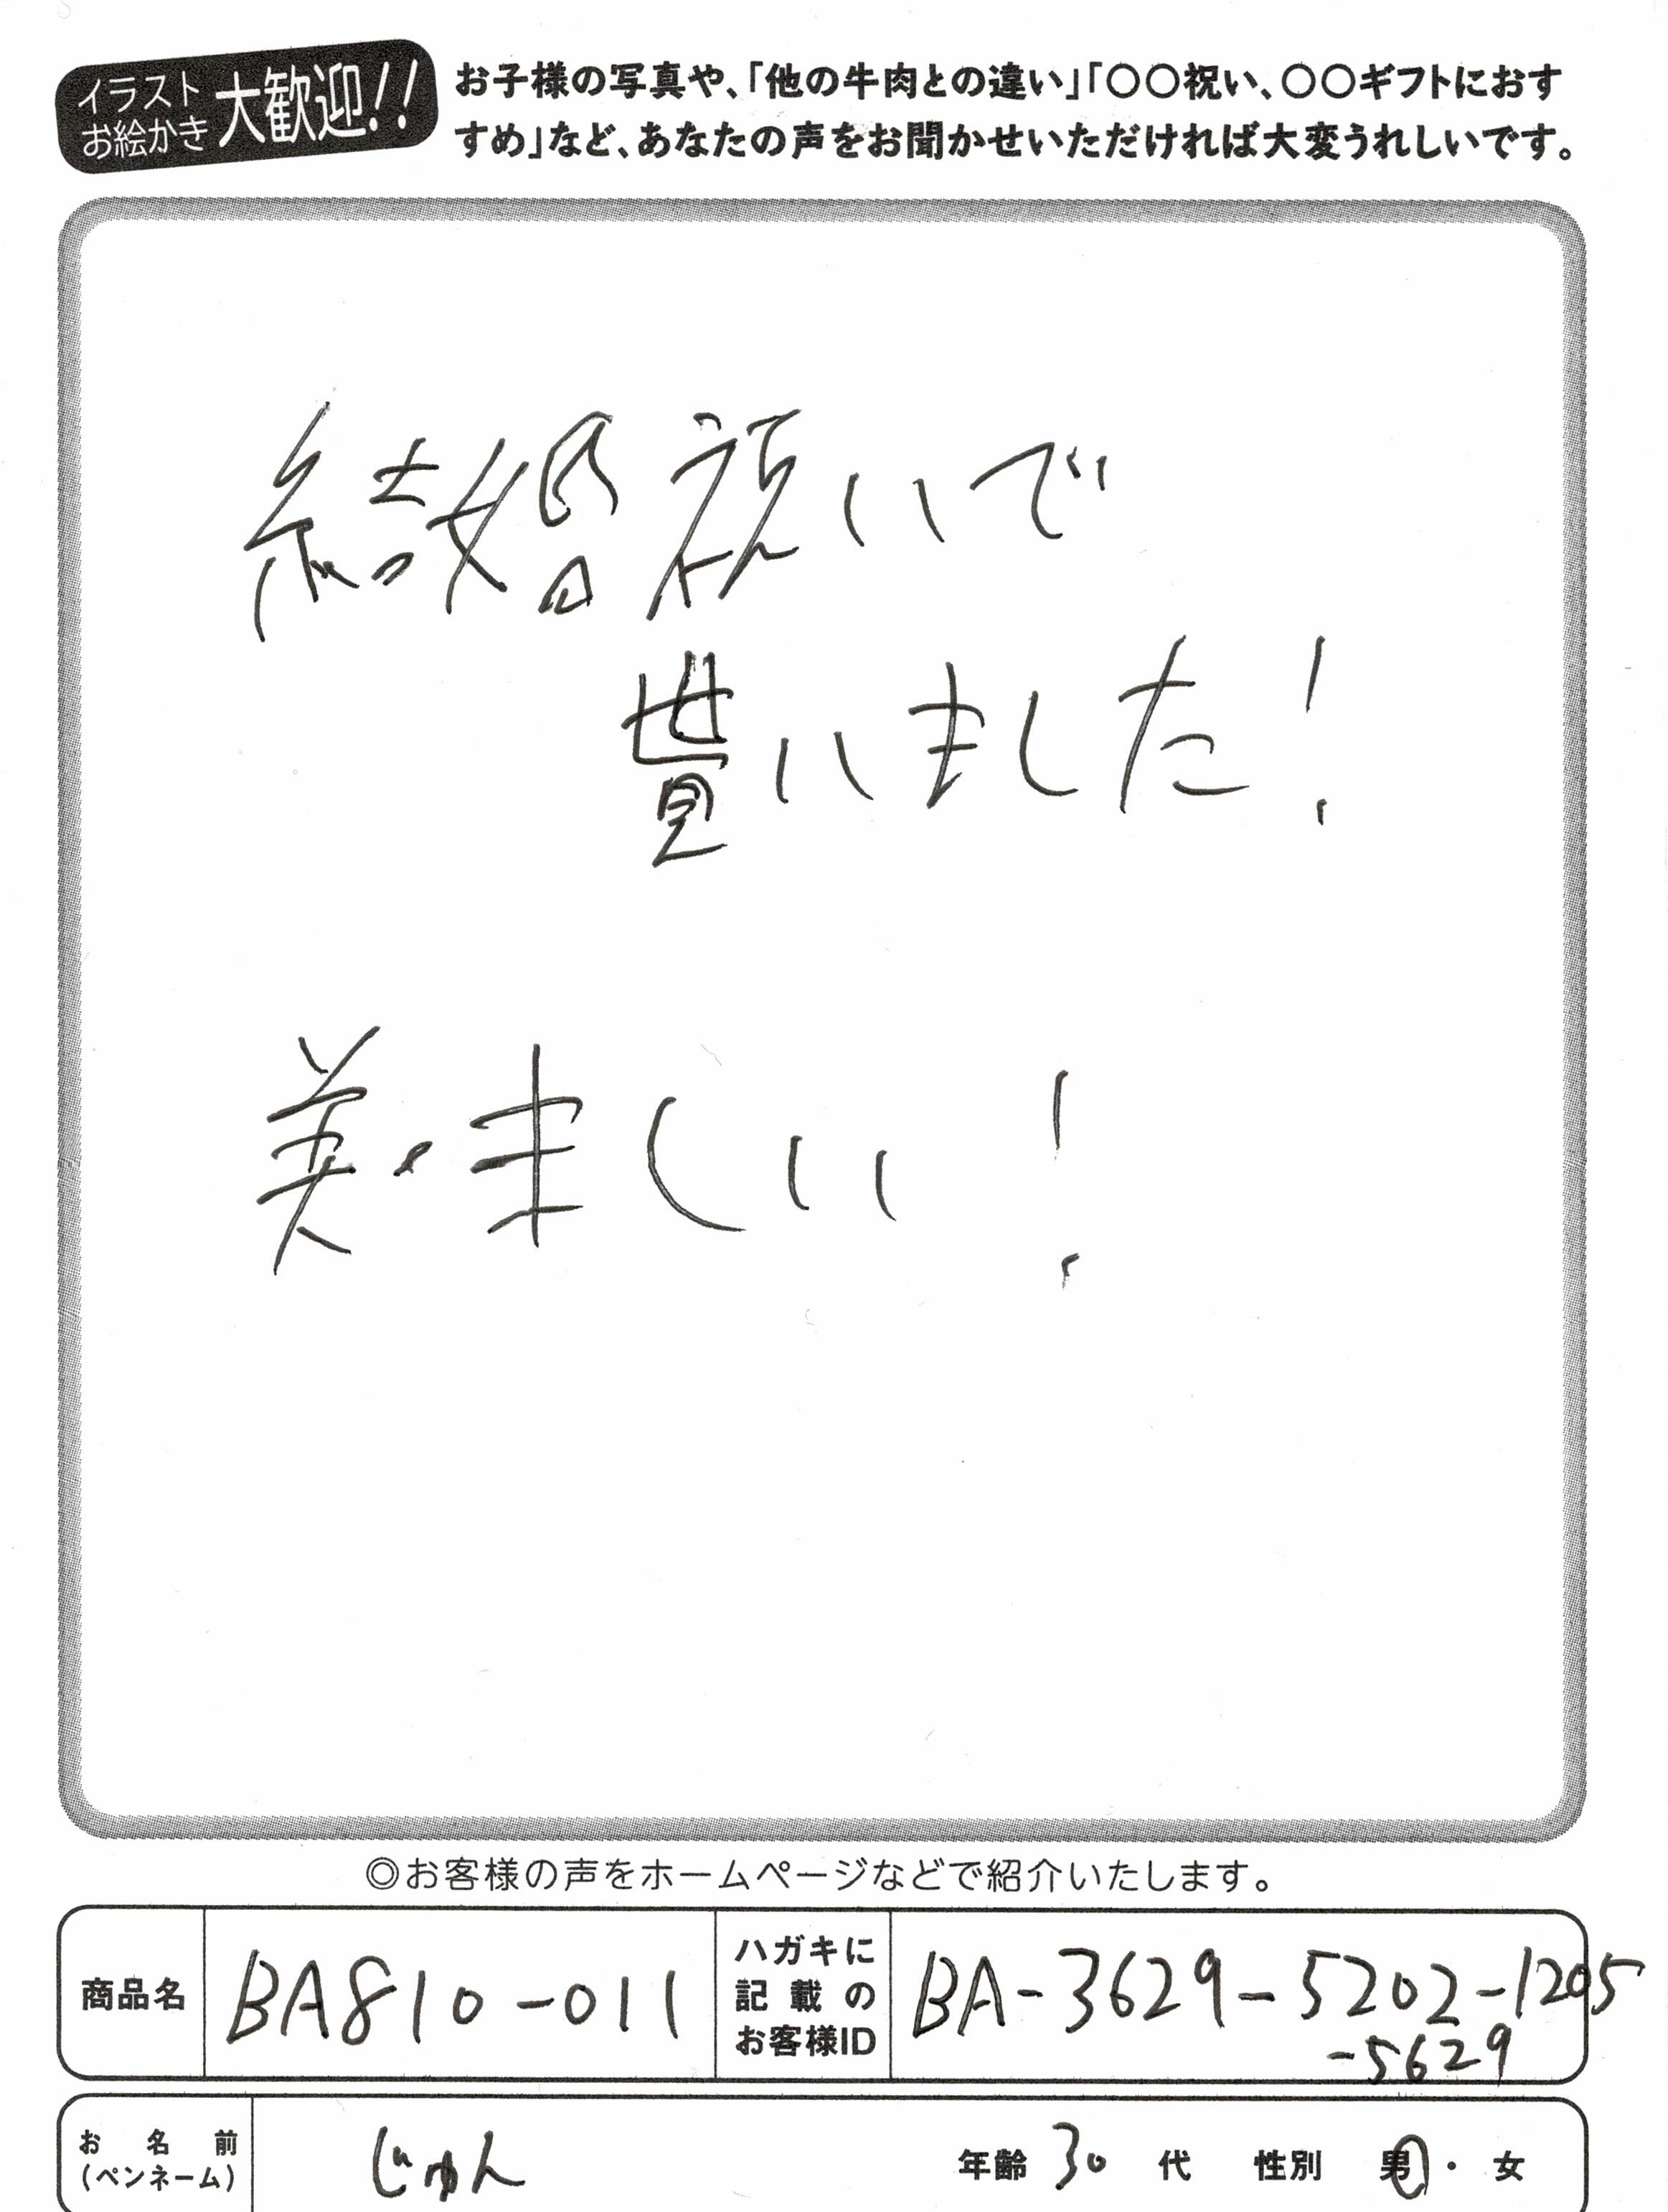 イラスト
お絵かき
大歓迎!!
お子様の写真や、「他の牛肉との違い」「〇〇祝い、〇〇ギフトにおす
すめ」など、あなたの声をお聞かせいただければ大変うれしいです。
結婚祝いで
貰いました!
美味しい!
◎お客様の声をホームページなどで紹介いたします。
商品名 BA810-011
ハガキに
記載の
お客様ID
BA-3629-5202-1205
-5629
お名前
(ペンネーム)
じゅん
年齢 30 代 性別 男・女